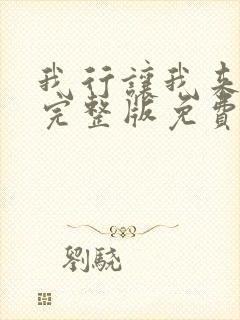 我行讓我来
完整版免費
劉驍